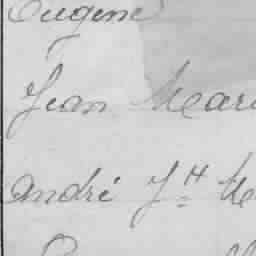 Eugène
Jean Mari
André Jh M